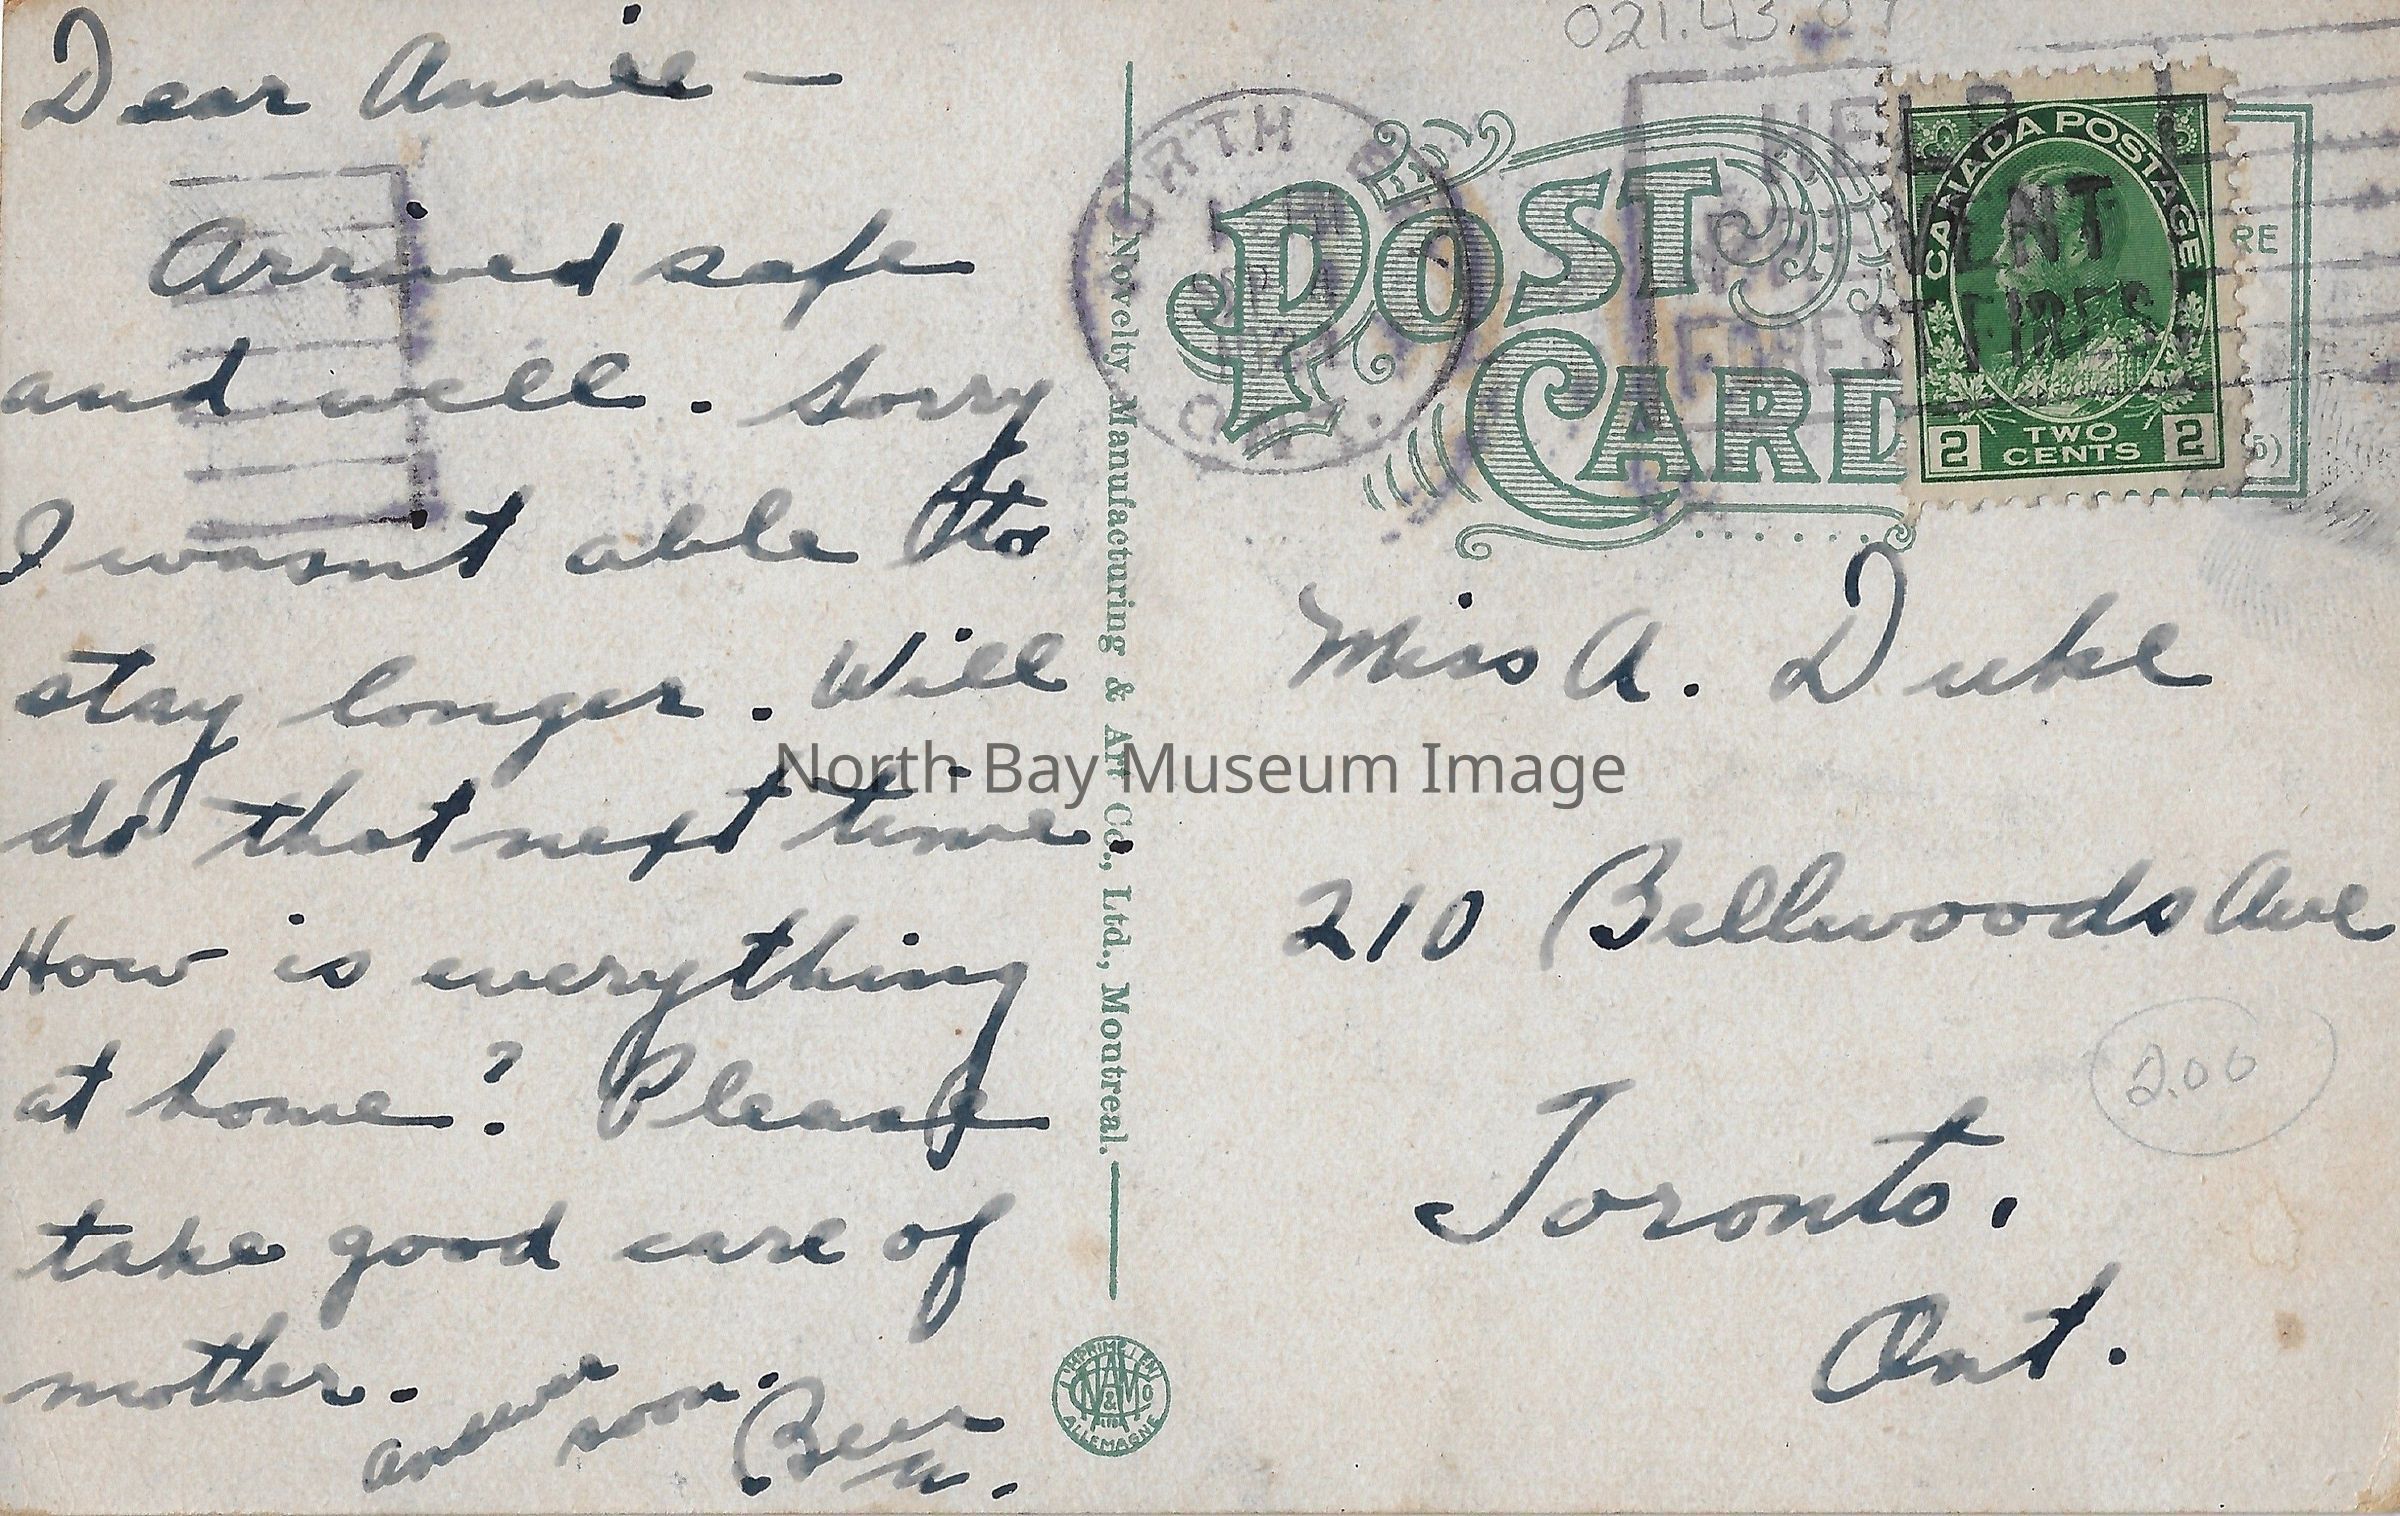 Dear Annie —
Arrived safe
and well. Sorry
I wasn't able to
stay longer. Will
do that next time.
How is everything
at home? Please
take good care of
mother.
answer
soon.
021.43.07
NORTH BAY
ONT.
HELP
PREVENT
FOREST FIRES
POST
CARD
CANADA POSTAGE
2 TWO CENTS 2
Novelty Manufacturing & Art Co., Ltd., Montreal.
Miss A. Duke
210 Bellwoods Ave
Toronto.
Ont.
2.00
IMPRIMÉ EN
ALLEMAGNE
North Bay Museum Image